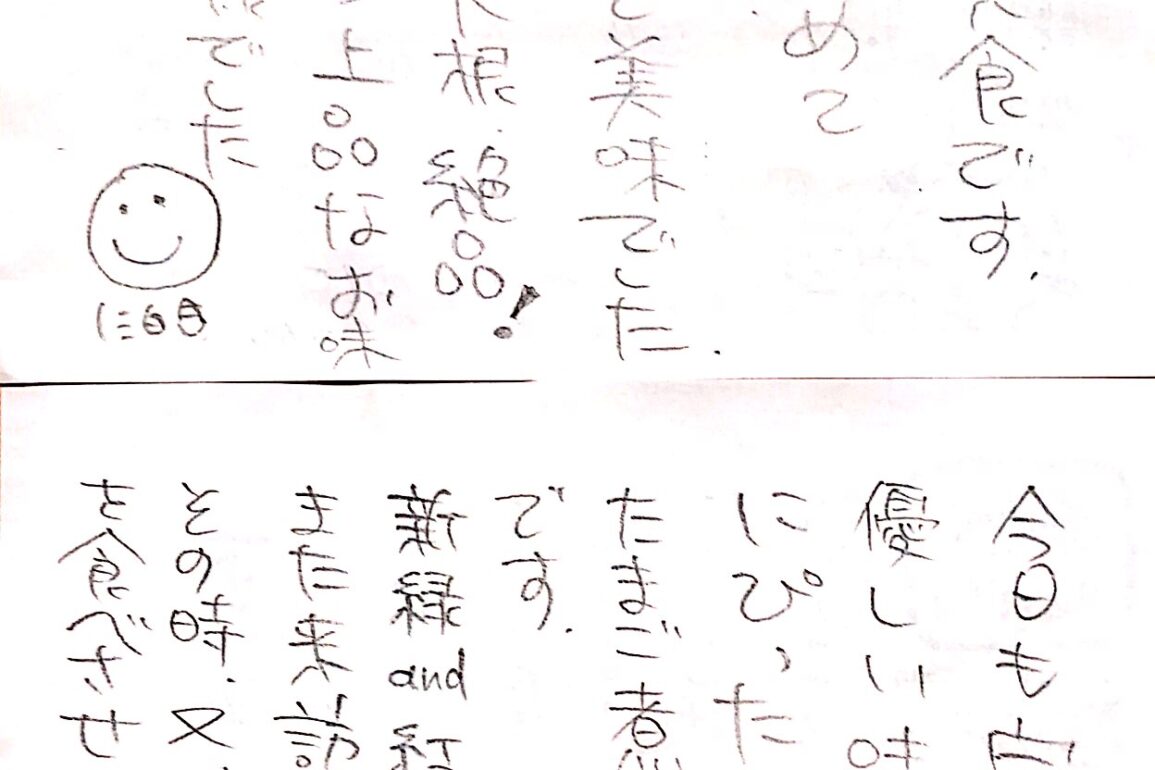 食です.
めて
美味でした.
根絶品!
上品なお味
でした
今日も
優しい味
にぴった
たまご煮
です.
新緑and紅
また来訪
その時.又
を食べさせ